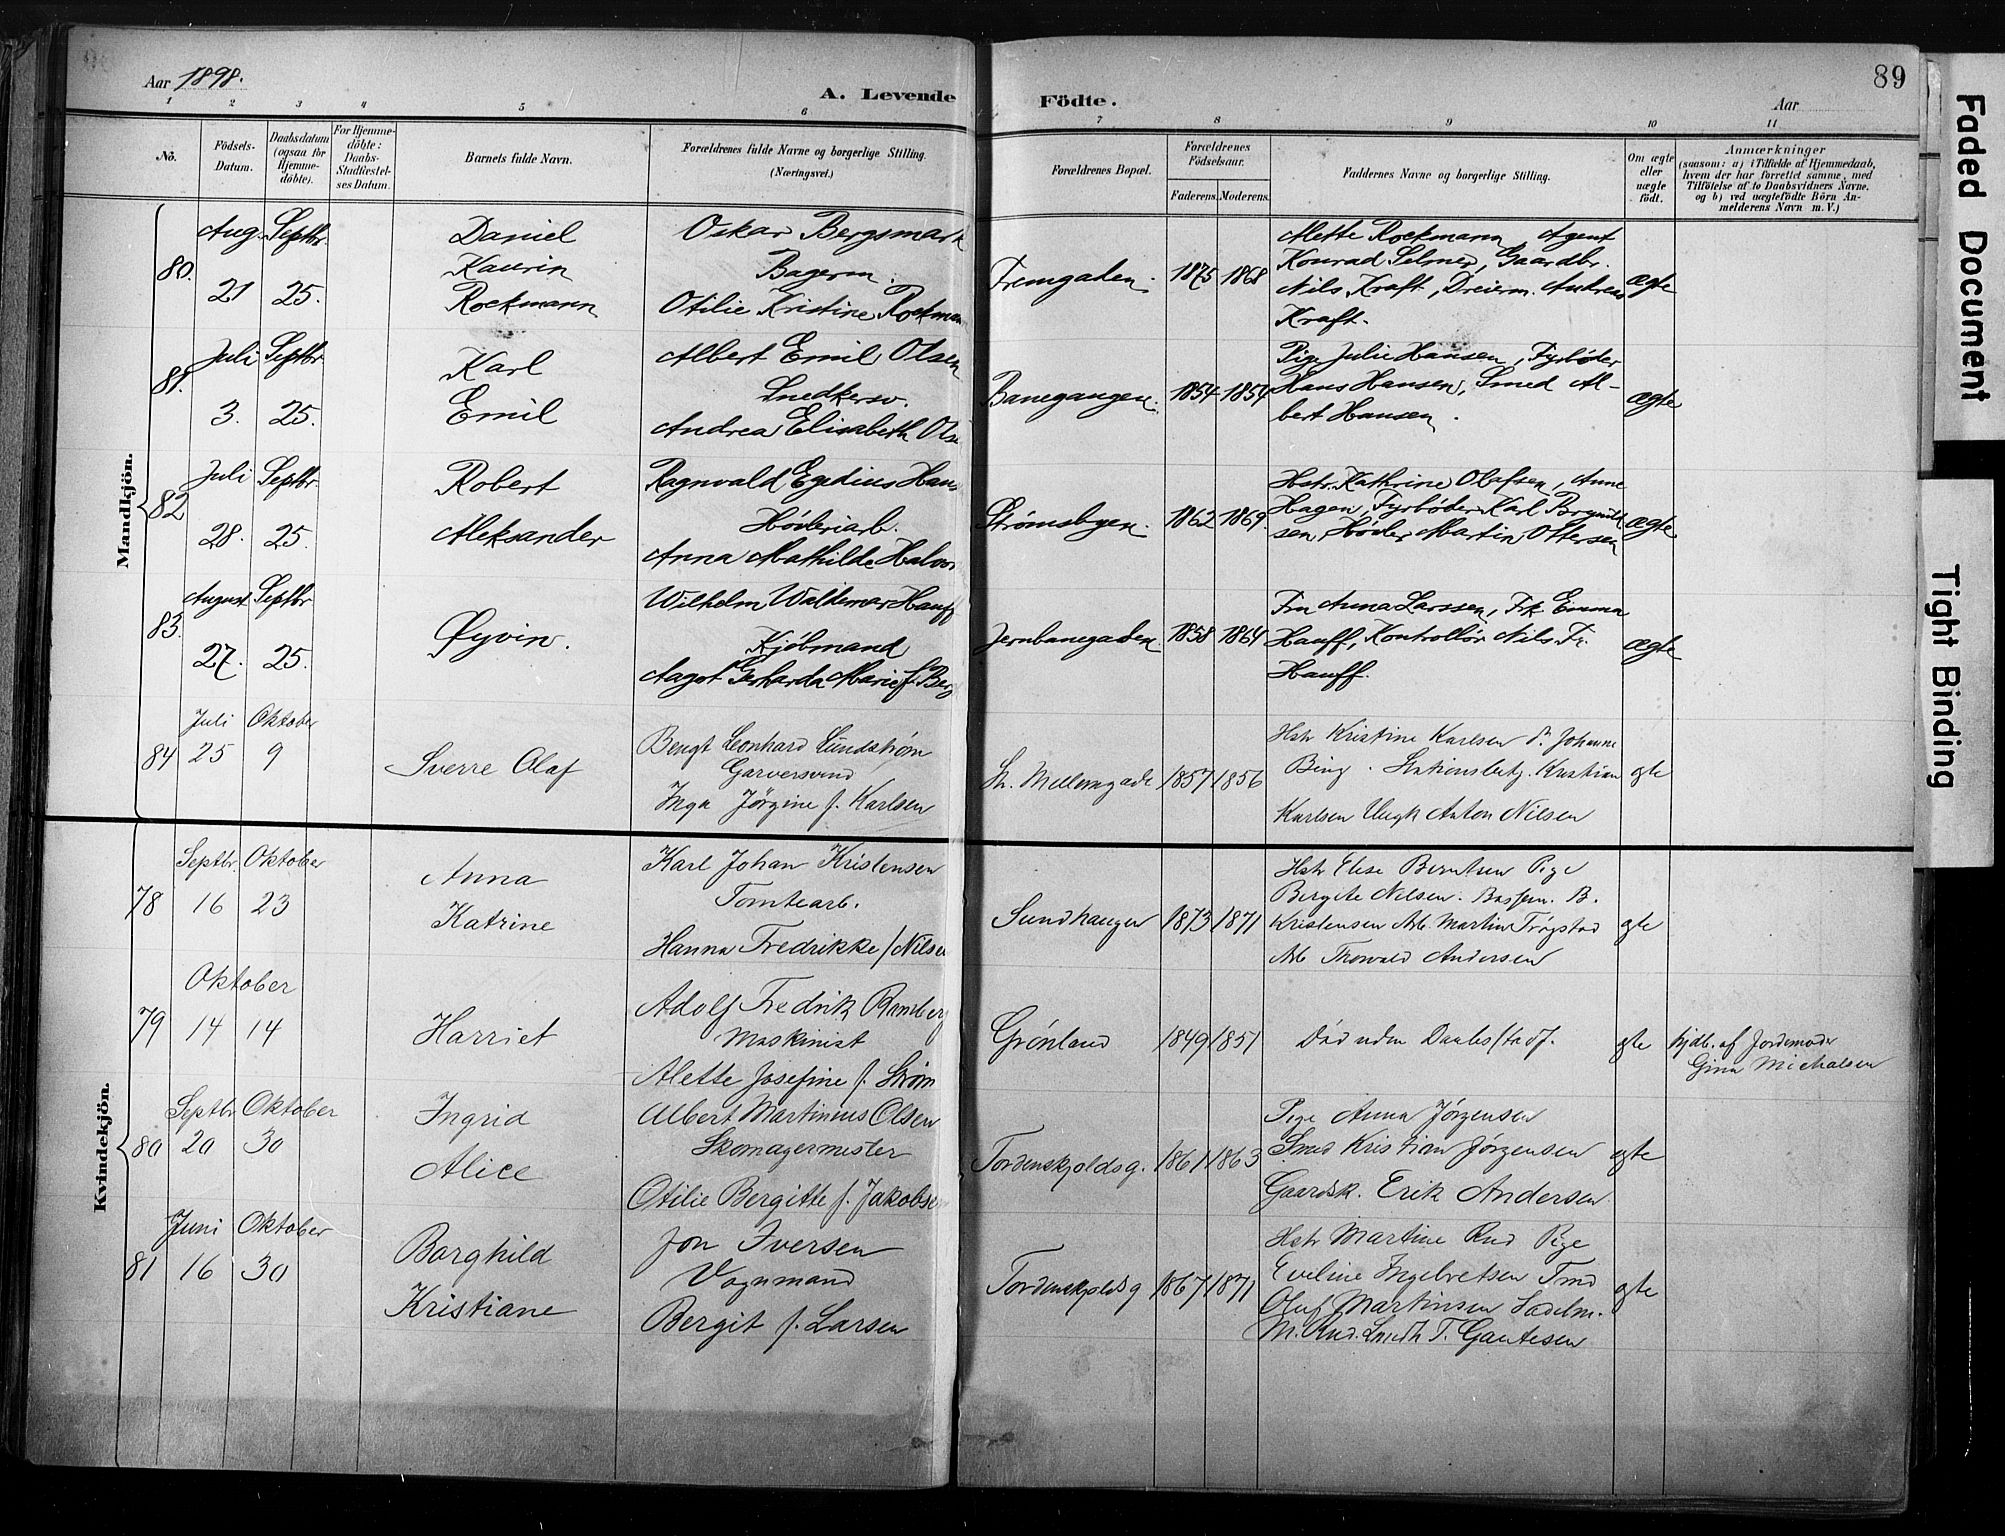 Aar 1898.
A. Levende
Födte.
Aar
89
1 2 3 4 5 6 7 8 9 10 11
No.
Födsels-Datum.
Daabsdatum (ogsaa for Hjemme-döbte).
For Hjemme-döbte: Daabs-Stadfæstel-ses Datum.
Barnets fulde Navn.
Forældrenes fulde Navne og borgerlige Stilling.
(Næringsvei.)
Forældrenes Bopæl.
Forældrenes Födselsaar.
Faderens. Moderens.
Faddernes Navne og borgerlige Stilling.
Om ægte eller uægte födt.
Anmærkninger
(saasom: a) i Tilfælde af Hjemmedaab,
hvem der har forrettet samme, med
Tilföielse af to Daabsvidners Navne.
og b) ved uægtefödte Börn An-
melderens Navn m. V.)
Mandkjön.
80.
Aug. 21
Septbr. 25.
Daniel
Kaurin
Rockmann
Oskar Bergsmark
Bagerm.
Otilie Kristine Rockman
Fremgaden.
1875 1868
Alette Rockmann, Agent
Konrad Selmer, Gaardbr.
Nils Kraft, Dreierm. Andreas
Kraft.
ægte
81.
Juli 3.
Septbr 25.
Karl
Emil
Albert Emil Olsen
Snedkersv.
Andrea Elisabeth Olse
Banegangen.
1854 1854
Pige Julie Hansen, Fyrbøder
Hans Hansen, Smed Al-
bert Hansen.
ægte
82
Juli 28.
Septbr. 25.
Robert
Aleksander
Ragnvald Egedius Hans
Høvleriarb.
Anna Mathilde Halvor
Strømsbyen.
1862 1869.
Hstr. Kathrine Olafsen, Anne
Hagen, Fyrbøder Karl
sen, Høvler Martin Ottersen
ægte
83.
August 27.
Septbr 25.
Øyvin.
Wilhelm Waldemar Hauff
Kjøbmand
Aagot Gerharda Marie f. Berg
Jernbanegaden.
1858 1864
Fru Anna Larssen, Frk. Emma
Hauff, Kontrollør Nils Fr.
Hauff.
ægte
84
Juli 25
Oktober 9
Sverre Olaf
Bengt Leonhard Lundstrøm
Garversvend
Inga Jørgine f. Karlsen
St. Mellemgade
1857 1856
Hstr Kristine Karlsen Johanne
Bing. Stationsbetj. Kristian
Karlsen Ungk Anton Nilsen
ægte
Kvindekjön.
78
Septbr. 16
Oktober 23
Anna
Katrine
Karl Johan Kristensen
Tomtearb.
Hanna Fredrikke f. Nilse
Sundhaugen
1873 1871
Hstr Elise Berntsen Pige
Bergite Nilsen. B.
Kristensen Arb. Martin Trøgstad
Arb Thorvald Andersen
ægte
79
Oktober
14 14
Harriet
Adolf Fredrik Ramberg
Maskinist
Alette Josefine f. Strøm
Grønland
1849 1851
Død uden Daabsstadf.
ægte
hjdb. af Jordemoder
Gina Michalsen
80
Septbr 20
Oktober 30
Ingrid
Alice
Albert Martinius Olsen
Skomagermester
Otilie Bergitte f. Jakobsen
Tordenskjoldsg.
1861 1863
Pige Anna Jørgensen
Smed Kristian Jørgensen
Gaardsk. Erik Andersen
ægte
81
Juni 16
Oktober 30
Borghild
Kristiane
Jon Iversen
Vognmand
Bergit f. Larsen
Tordenskjoldsg
1867 1871
Hstr Martine Rud Pige
Eveline Ingebretsen Tmd
Oluf Martinsen Sadelm.
M. Rud. Smedk T. Gautesen
ægte
Faded Document
Tight Binding